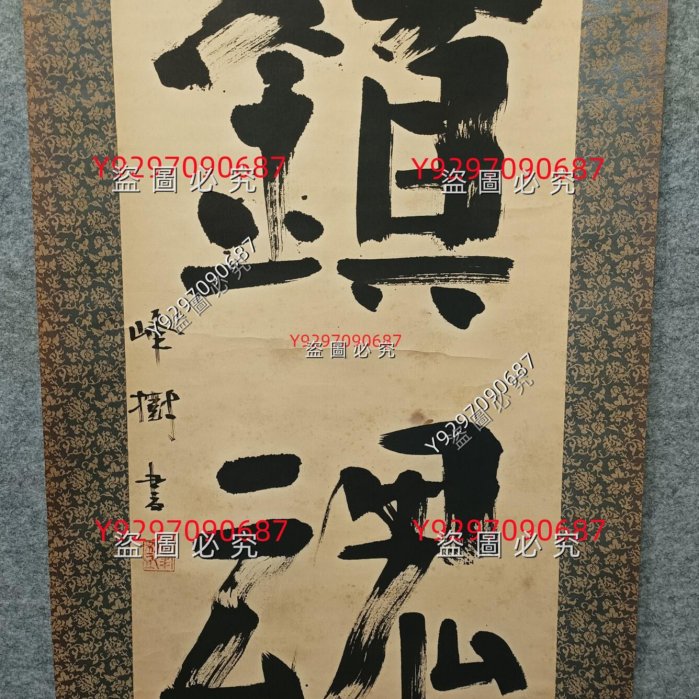 鎮
魂
峰樹書
Y9297090687
盜圖必究
Y9297090687
盜圖必究
Y9297090687
盜圖必究
Y9297090687
盜圖必究
Y9297090687
盜圖必究
Y9297090687
盜圖必究
Y9297090687
盜圖必究